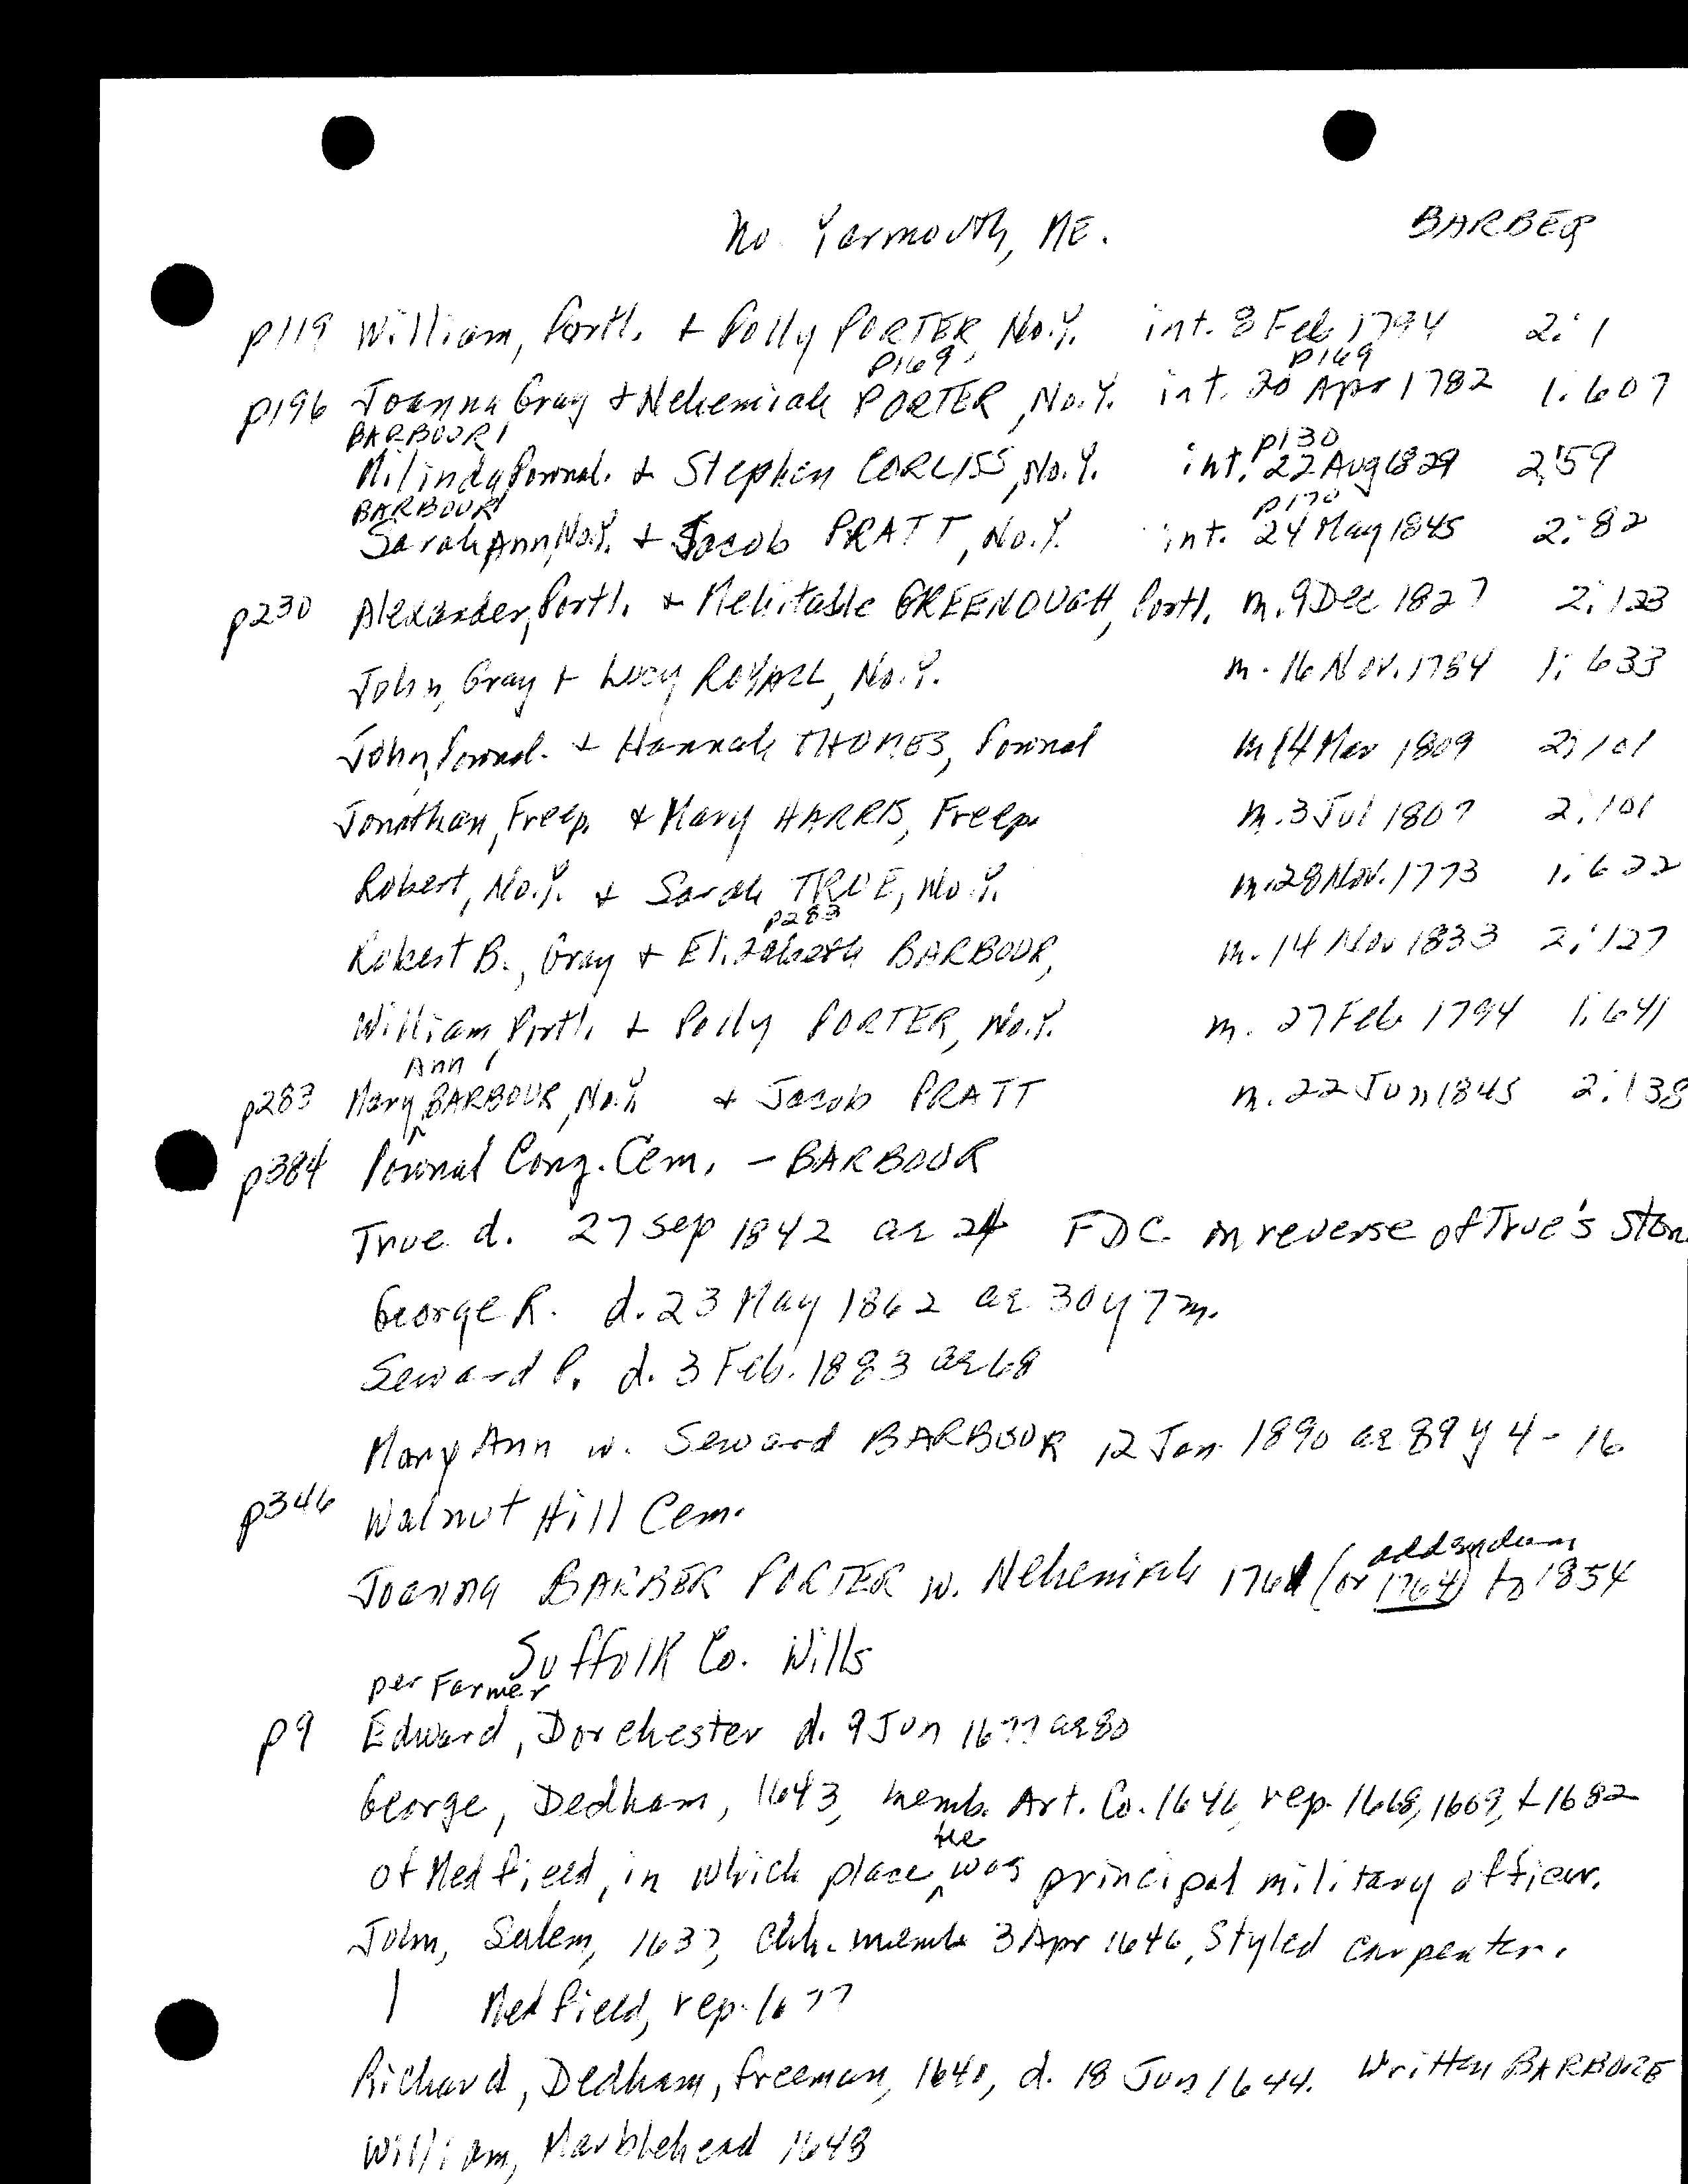 No. Yarmouth, ME. BARBER
p119 William, Portl. + Polly PORTER, No.Y. int. 8 Feb 1794 2:1
p169 p169
p196 Joanna Gray + Nehemiah PORTER, No.Y. int. 20 Apr 1782 1:607
BARBOUR p130
Milinda, Pownal. + Stephen CORLISS, No.Y. int. 22 Aug 1829 2:59
BARBOUR p170
Sarah Ann, No.Y. + Jacob PRATT, No.Y. int. 24 May 1845 2:82
p230 Alexander, Portl. + Mehitable GREENOUGH, Portl. m. 9 Dec 1827 2:123
John, Gray + Lucy ROYALL, No.Y. m. 16 Nov. 1784 1:633
John, Pownal. + Hannah THOMES, Pownal m 14 Mar 1809 2:101
Jonathan, Freep. + Mary HARRIS, Freep. m. 3 Jul 1807 2:101
Robert, No.Y. + Sarah TRUE, No.Y. m. 28 Nov. 1773 1:622
p283
Robert B., Gray + Elizabeth BARBOUR, m. 14 Nov 1833 2:127
William, Portl. + Polly PORTER, No.Y. m. 27 Feb 1794 1:641
Ann
p283 Mary BARBOUR, No.Y. + Jacob PRATT m. 22 Jun 1845 2:138
p384 Pownal Cong. Cem. - BARBOUR
True d. 27 Sep 1842 ae 24 FDC on reverse of True's Ston
George R. d. 23 May 1862 ae 30y 7m.
Seward P. d. 3 Feb. 1883 ae 68
Mary Ann w. Seward BARBOUR 12 Jan 1890 ae 89 y 4 - 16
p346 Walnut Hill Cem.
addendum
Joanna BARBER PORTER w. Nehemiah (or 1764) to 1854
Suffolk Co. Wills
per Farmer
p9 Edward, Dorchester d. 9 Jun 1677 ae 80
George, Dedham, 1643, memb. Art. Co. 1646, rep. 1668, 1669, + 1682
he
of Medfield, in which place ^ was principal military officer.
John, Salem, 1637, chh. memb 3 Apr 1646, Styled carpenter.
Medfield, rep. 1677
Richard, Dedham, freeman, 1640, d. 18 Jun 1644. Written BARBORE
William, Marblehead 1648